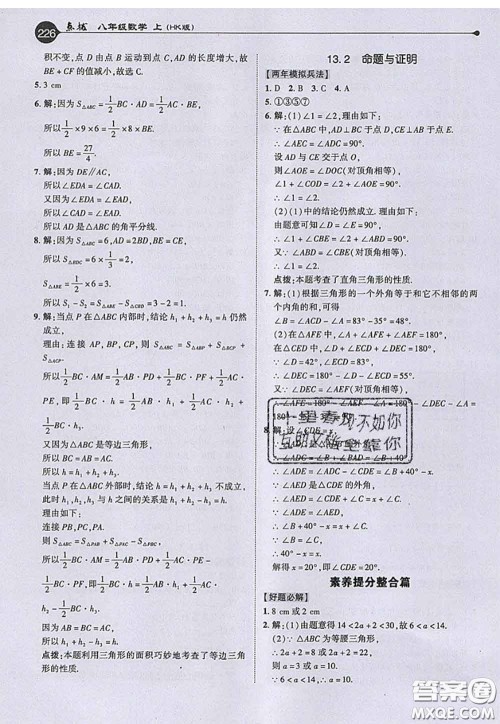 226 点拨 八年级数学 上 (HK版)
积不变,点 D 由点 B 运动到点 C,AD 的长度增大,故
BE + CF 的值减小,故选 C.
5. 3 cm
6. 解:因为 S△ABC = 1/2 BC · AD = 1/2 AC · BE,
所以 1/2 × 9 × 6 = 1/2 × 8 × BE,
所以 BE = 27/4.
7. 解:因为 DE∥AC,
所以∠EDA = ∠CAD.
又因为∠EDA = ∠EAD,
所以∠CAD = ∠EAD,
所以 AD 为△ABC 的角平分线.
8. 解:因为 S△ABC = 6,AD = BD,BE = CE,
所以 S△BCD = 6 × 1/2 = 3,
S△ABE = 1/2 × 6 = 3.
所以 S1 − S2 = S△ABE − S△BCD = 3 − 3 = 0.
9. 解:当点 P 在△ABC 内部时,结论 h1 + h2 + h3 = h 仍然
成立,
理由:连接 AP,BP,CP,则 S△ABC = S△ABP + S△BCP
+ S△ACP,
所以 1/2 BC · AM = 1/2 AB · PD + 1/2 BC · PF + 1/2 AC ·
PE.
又因为△ABC 是等边三角形,
所以 BC = AB = AC.
所以 h = h1 + h2 + h3.
当点 P 在△ABC 外部时,结论 h1 + h2 + h3 = h 不成立,
此时 h1,h2,h3 与 h 之间的关系是 h1 + h2 − h3 = h.
理由如下:
连接 PB,PC,
所以 S△ABC = S△PAB + S△PAC − S△PBC,
所以 1/2 BC · AM = 1/2 AB · PD + 1/2 AC · PE −
1/2 BC · PF,即 1/2 BC · h = 1/2 AB · h1 + 1/2 AC · h2 −
1/2 BC · h3.
又因为 AB = BC = AC,所以 h1 + h2 − h3 = h.
点拨:本题利用三角形的面积巧妙地考查了等边三角形
的有关性质.
13.2 命题与证明
【两年模拟兵法】
1. D 2. B 3. B 4. C
5. ①③⑤⑦
6. 解:(1)∠1 = ∠2. 理由如下:
∵ 在△ABC 中,AD⊥BC 于点 D,CE⊥AB 于点 E,
∴ ∠AEC = ∠ADC = 90°.
设 AD 与 CE 交于点 O,
则∠AOE = ∠DOC(对顶角相等),
∠1 + ∠COD = ∠2 + ∠AOE = 90°,
∴ ∠1 = ∠2.
(2)(1)中的结论仍然成立. 理由如下:
由题意可知∠D = ∠E = 90°.
∵ ∠1 + ∠CBE = ∠2 + ∠ABD = 90°,
∠CBE = ∠ABD(对顶角相等),
∴ ∠1 = ∠2.
点拨:本题考查了直角三角形的性质.
7. 解:(1)根据三角形的一个外角等于和它不相邻的两
个内角的和,可得
∠B = ∠ACD − ∠A = 83° − 35° = 48°.
(2) ∵ ∠D = 42°,∠ECD = 83°,
∴ ∠DEC = 180° − ∠D − ∠ECD = 55°.
∴ ∠AEF = ∠DEC = 55°(对顶角相等).
∵ ∠AFE = 180° − ∠AEF − ∠A =
∴ ∠ADE = ∠AED = ∠C + ∠CDE = 40° + x.
∵ ∠ADC 是△ABD 的外角,
∴ ∠ADC = ∠B + ∠BAD.
∵ ∠ADC = ∠ADE + ∠CDE,
∴ ∠B + 40° = 40° + x + x.
∴ 40° − x = x.
解得 x = 20°.
∴ ∠CDE = 20°.
素养提分整合篇
【好题必解】
1. 8 cm 或 2 cm
2. 解:(1)由题意得 14 < 2a + 2 < 30,所以 6 < a < 14.
(2)∵ △ABC 为等腰三角形,
∴ 2a + 2 = 22 或 2a + 2 = 8,
则 a = 10 或 a = 3.
∵ 6 < a < 14,
答案
MXQE.COM